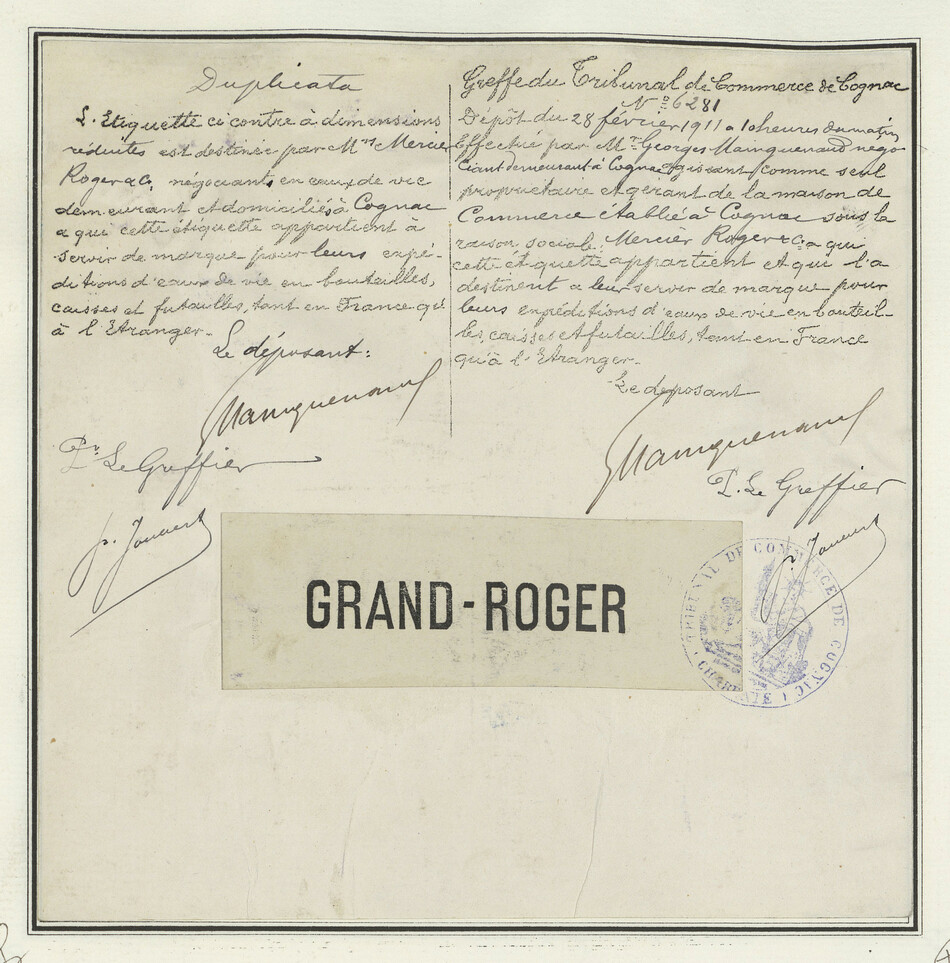 Duplicata
L'Etiquette ci contre à dimensions
réduites est destinée par Mrs Mercier
Roger & Co, négociants en eaux de vie
demeurant et domiciliés à Cognac
a qui cette étiquette appartient à
servir de marque pour leurs expé-
ditions d'eaux de vie en bouteilles,
caisses et futailles, tant en France qu'
à l'Etranger.
Le déposant:
Mainguenaud
Pr Le Greffier
Greffe du Tribunal de Commerce de Cognac
No 6281
Dépôt du 28 février 1911 a 10 heures du matin
Effectué par Mr Georges Mainguenaud négo
ciant demeurant à Cognac agissant comme seul
propriétaire et gérant de la maison de
Commerce établie à Cognac sous la
raison sociale, Mercier Roger & Co a qui
cette étiquette appartient et qui l'a
destinent a leur servir de marque pour
leurs expéditions d'eaux de vie en bouteil-
les, caisses et futailles, tant en France
qu'à l'Etranger.
Le deposant
Mainguenaud
P. Le Greffier
GRAND-ROGER
TRIBUNAL DE COMMERCE DE COGNAC
CHARENTE